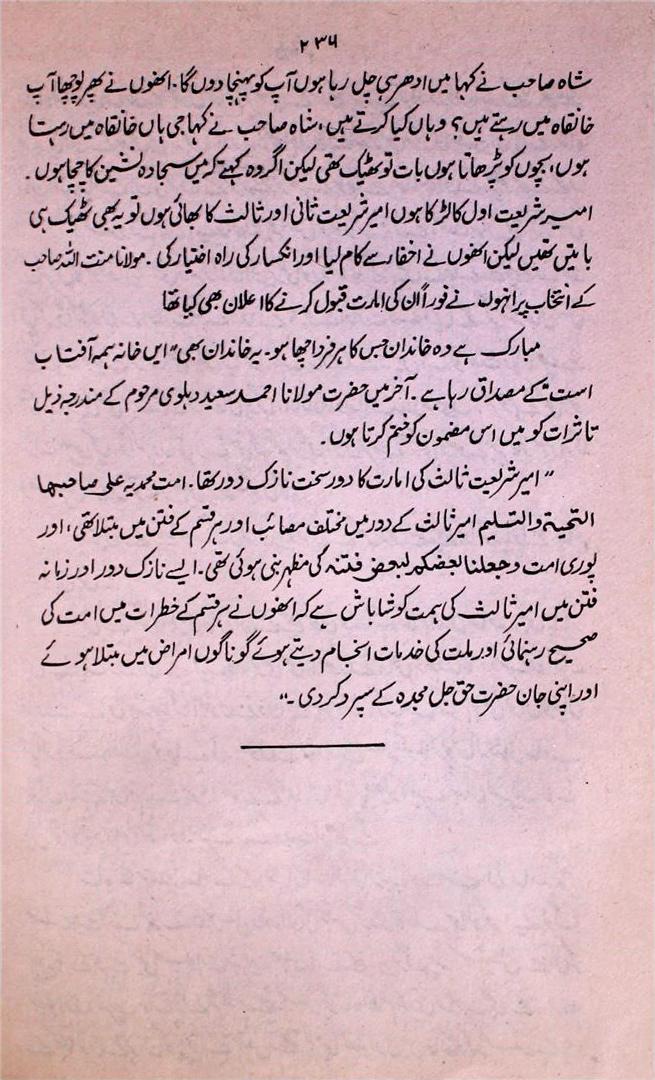 ۲۳۶
شاہ صاحب نے کہا میں ادھر ہی چل رہا ہوں آپ کو پہنچا دوں گا۔ انھوں نے پھر پوچھا آپ
خانقاہ میں رہتے ہیں؟ وہاں کیا کرتے ہیں، شاہ صاحب نے کہا جی ہاں خانقاہ میں رہتا
ہوں، بچوں کو پڑھاتا ہوں بات تو ٹھیک تھی لیکن اگر وہ کہتے کہ میں سجادہ نشین کا چچا ہوں۔
امیر شریعت اول کا لڑکا ہوں امیر شریعت ثانی اور ثالث کا بھائی ہوں تو یہ بھی ٹھیک ہی
باتیں تھیں لیکن انھوں نے اخفار سے کام لیا اور انکسار کی راہ اختیار کی۔ مولانا منت اللہ صاحب
کے انتخاب پر انہوں نے فوراً ان کی امارت قبول کرنے کا اعلان بھی کیا تھا
مبارک ہے وہ خاندان جس کا ہر فرد اچھا ہو۔ یہ خاندان بھی "ایں خانہ ہمہ آفتاب
است" کے مصداق رہا ہے۔ آخر میں حضرت مولانا احمد سعید دہلوی مرحوم کے مندرجہ ذیل
تاثرات کو میں اس مضمون کو ختم کرتا ہوں۔
"امیر شریعت ثالث کی امارت کا دور سخت نازک دور تھا۔ امت محمدیہ علی صاحبہا
التحیۃ والتسلیم امیر ثالث کے دور میں مختلف مصائب اور ہر قسم کے فتن میں مبتلا تھی، اور
پوری امت وجعلنا بعضکم لبعض فتنہ کی مظہر بنی ہوئی تھی۔ ایسے نازک دور اور زمانہ
فتن میں امیر ثالث کی ہمت کو شاباش ہے کہ انھوں نے ہر قسم کے خطرات میں امت کی
صحیح رہنمائی اور ملت کی خدمات انجام دیتے ہوئے گوناگوں امراض میں مبتلا ہوئے
اور اپنی جان حضرت حق جل مجدہ کے سپرد کر دی۔"